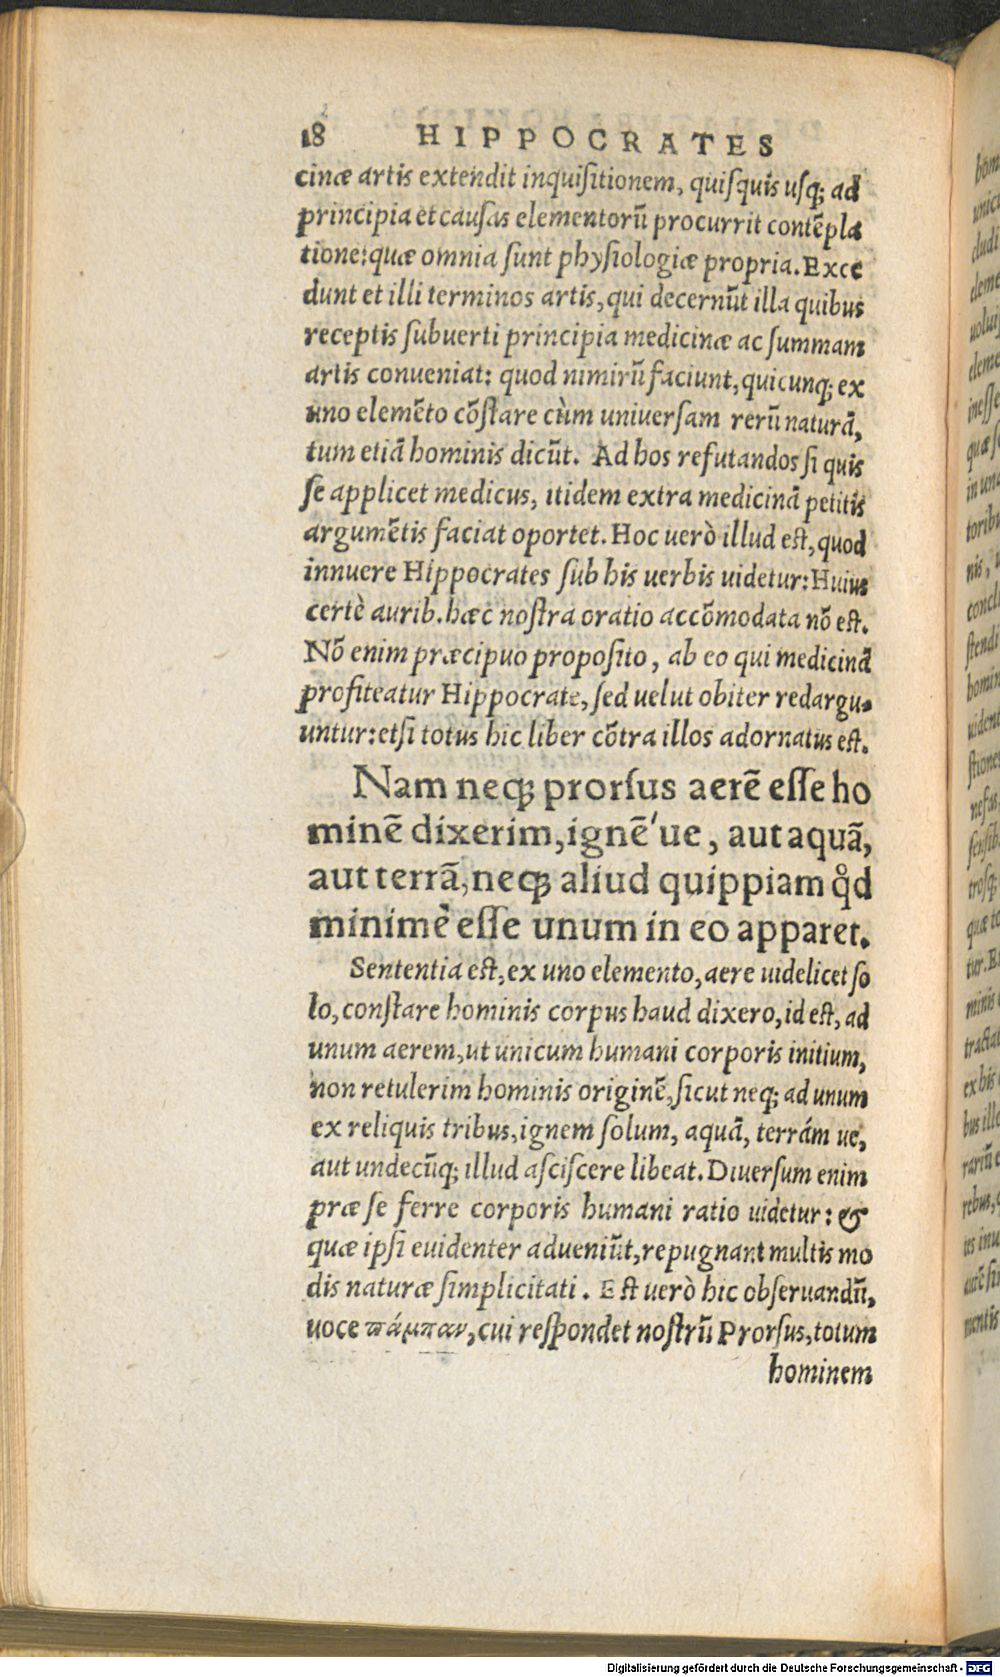 18 HIPPOCRATES
cinæ artis extendit inquiſitionem, quiſquis uſq; ad
principia et cauſas elementorũ procurrit contẽpla
tione: quæ omnia ſunt phyſiologiæ propria. Exce
dunt et illi terminos artis, qui decernũt illa quibus
receptis ſubuerti principia medicinæ ac ſummam
artis conueniat: quod nimirũ faciunt, quicunq; ex
uno elemẽto cõſtare cùm uniuerſam rerũ naturã,
tum etiã hominis dicũt. Ad hos refutandos ſi quis
ſe applicet medicus, itidem extra medicinã petitis
argumẽtis faciat oportet. Hoc uerò illud eſt, quod
innuere Hippocrates ſub his uerbis uidetur: Huius
certè aurib. hæc noſtra oratio accõmodata nõ eſt.
Nõ enim præcipuo propoſito, ab eo qui medicinã
profiteatur Hippocrate, ſed uelut obiter redargu-
untur: etſi totus hic liber cõtra illos adornatus eſt.
Nam neq; prorſus aerẽ eſſe ho
minẽ dixerim, ignẽ'ue, aut aquã,
aut terrã, neq; aliud quippiam qd̊
minimè eſſe unum in eo apparet.
Sententia eſt, ex uno elemento, aere uidelicet ſo
lo, conſtare hominis corpus haud dixero, id eſt, ad
unum aerem, ut unicum humani corporis initium,
non retulerim hominis originẽ, ſicut neq; ad unum
ex reliquis tribus, ignem ſolum, aquã, terrám ue,
aut undecũq; illud aſciſcere libeat. Diuerſum enim
præ ſe ferre corporis humani ratio uidetur: &
quæ ipſi euidenter adueniũt, repugnant multis mo
dis naturæ ſimplicitati. Eſt uerò hic obſeruandũ,
uoce πάμπαν, cui reſpondet noſtrũ Prorſus, totum
hominem
Digitalisierung gefördert durch die Deutsche Forschungsgemeinschaft - DFG